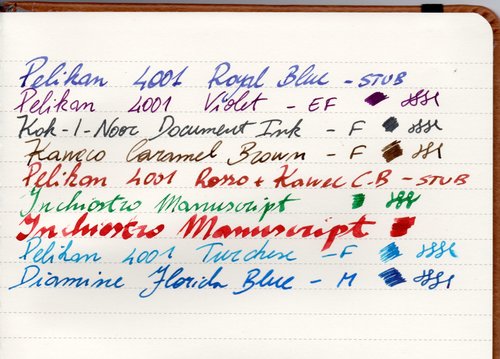 Pelikan 4001 Royal Blue - STUB
Pelikan 4001 Violet - EF
Koh-I-Noor Document Ink - F
Kaweco Caramel Brown - F
Pelikan 4001 Rosso + Kawec C.B - STUB
Inchiostro Manuscript
Inchiostro Manuscript
Pelikan 4001 Turchese - F
Diamine Florida Blue - M